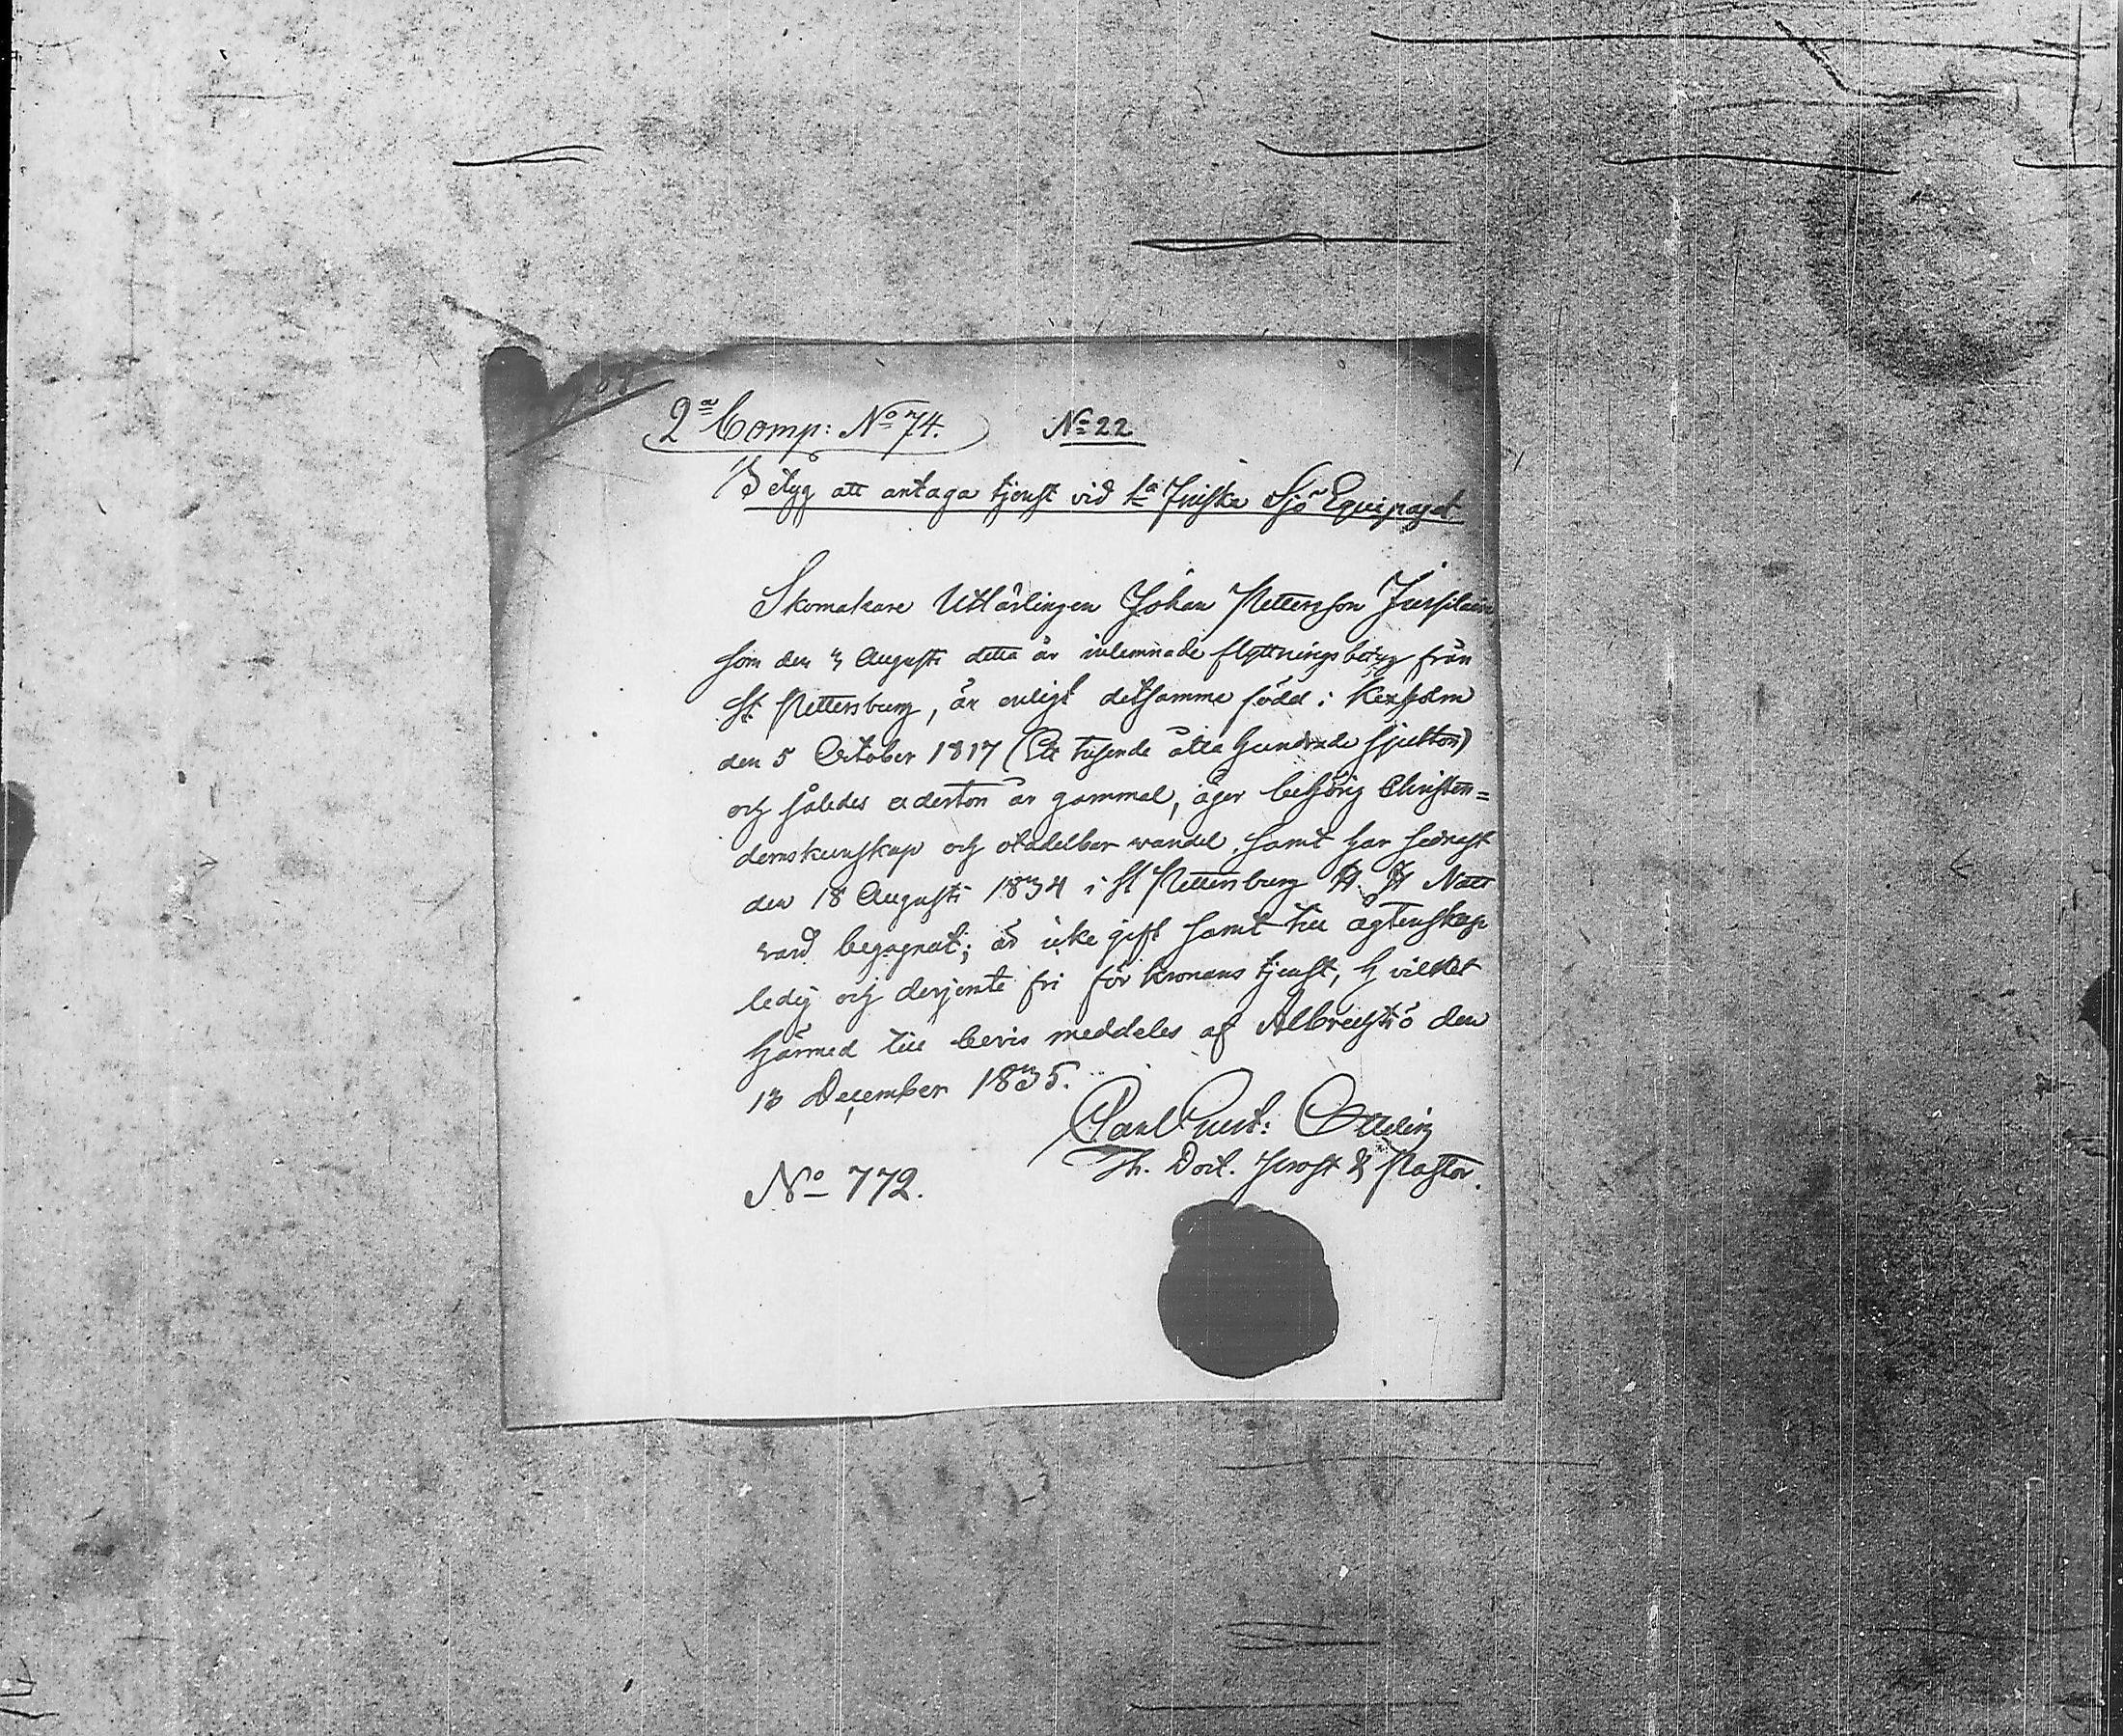 2ª Comp: Nº 74. Nº 22
Betyg att antaga tjenst vid 1ª Finska Sjö Equipaget
Skomakare Utlärlingen Johan Pettersson
som den 3 Augusti detta år inlemnade flyttningsbetyg från
St. Pettersburg, är enligt detsamma född i Kexholm
den 5 October 1817 (Ett tusende åtta hundrade sjutton)
och således aderton år gammal, äger behörig Christen=
domskunskap och otadelbar wandel, samt har sednast
den 18 Augusti 1834 i St Pettersburg H. H Natt
ward begagnat; är icke gift samt till ägtenskap
ledig och derjemte fri för kronans tjenst, hvilket
härmed till bevis meddeles af Albrechtsö den
13 December 1835.
Carl Gust: Ottelin
Th. Doct. Prost & Pastor.
Nº 772.